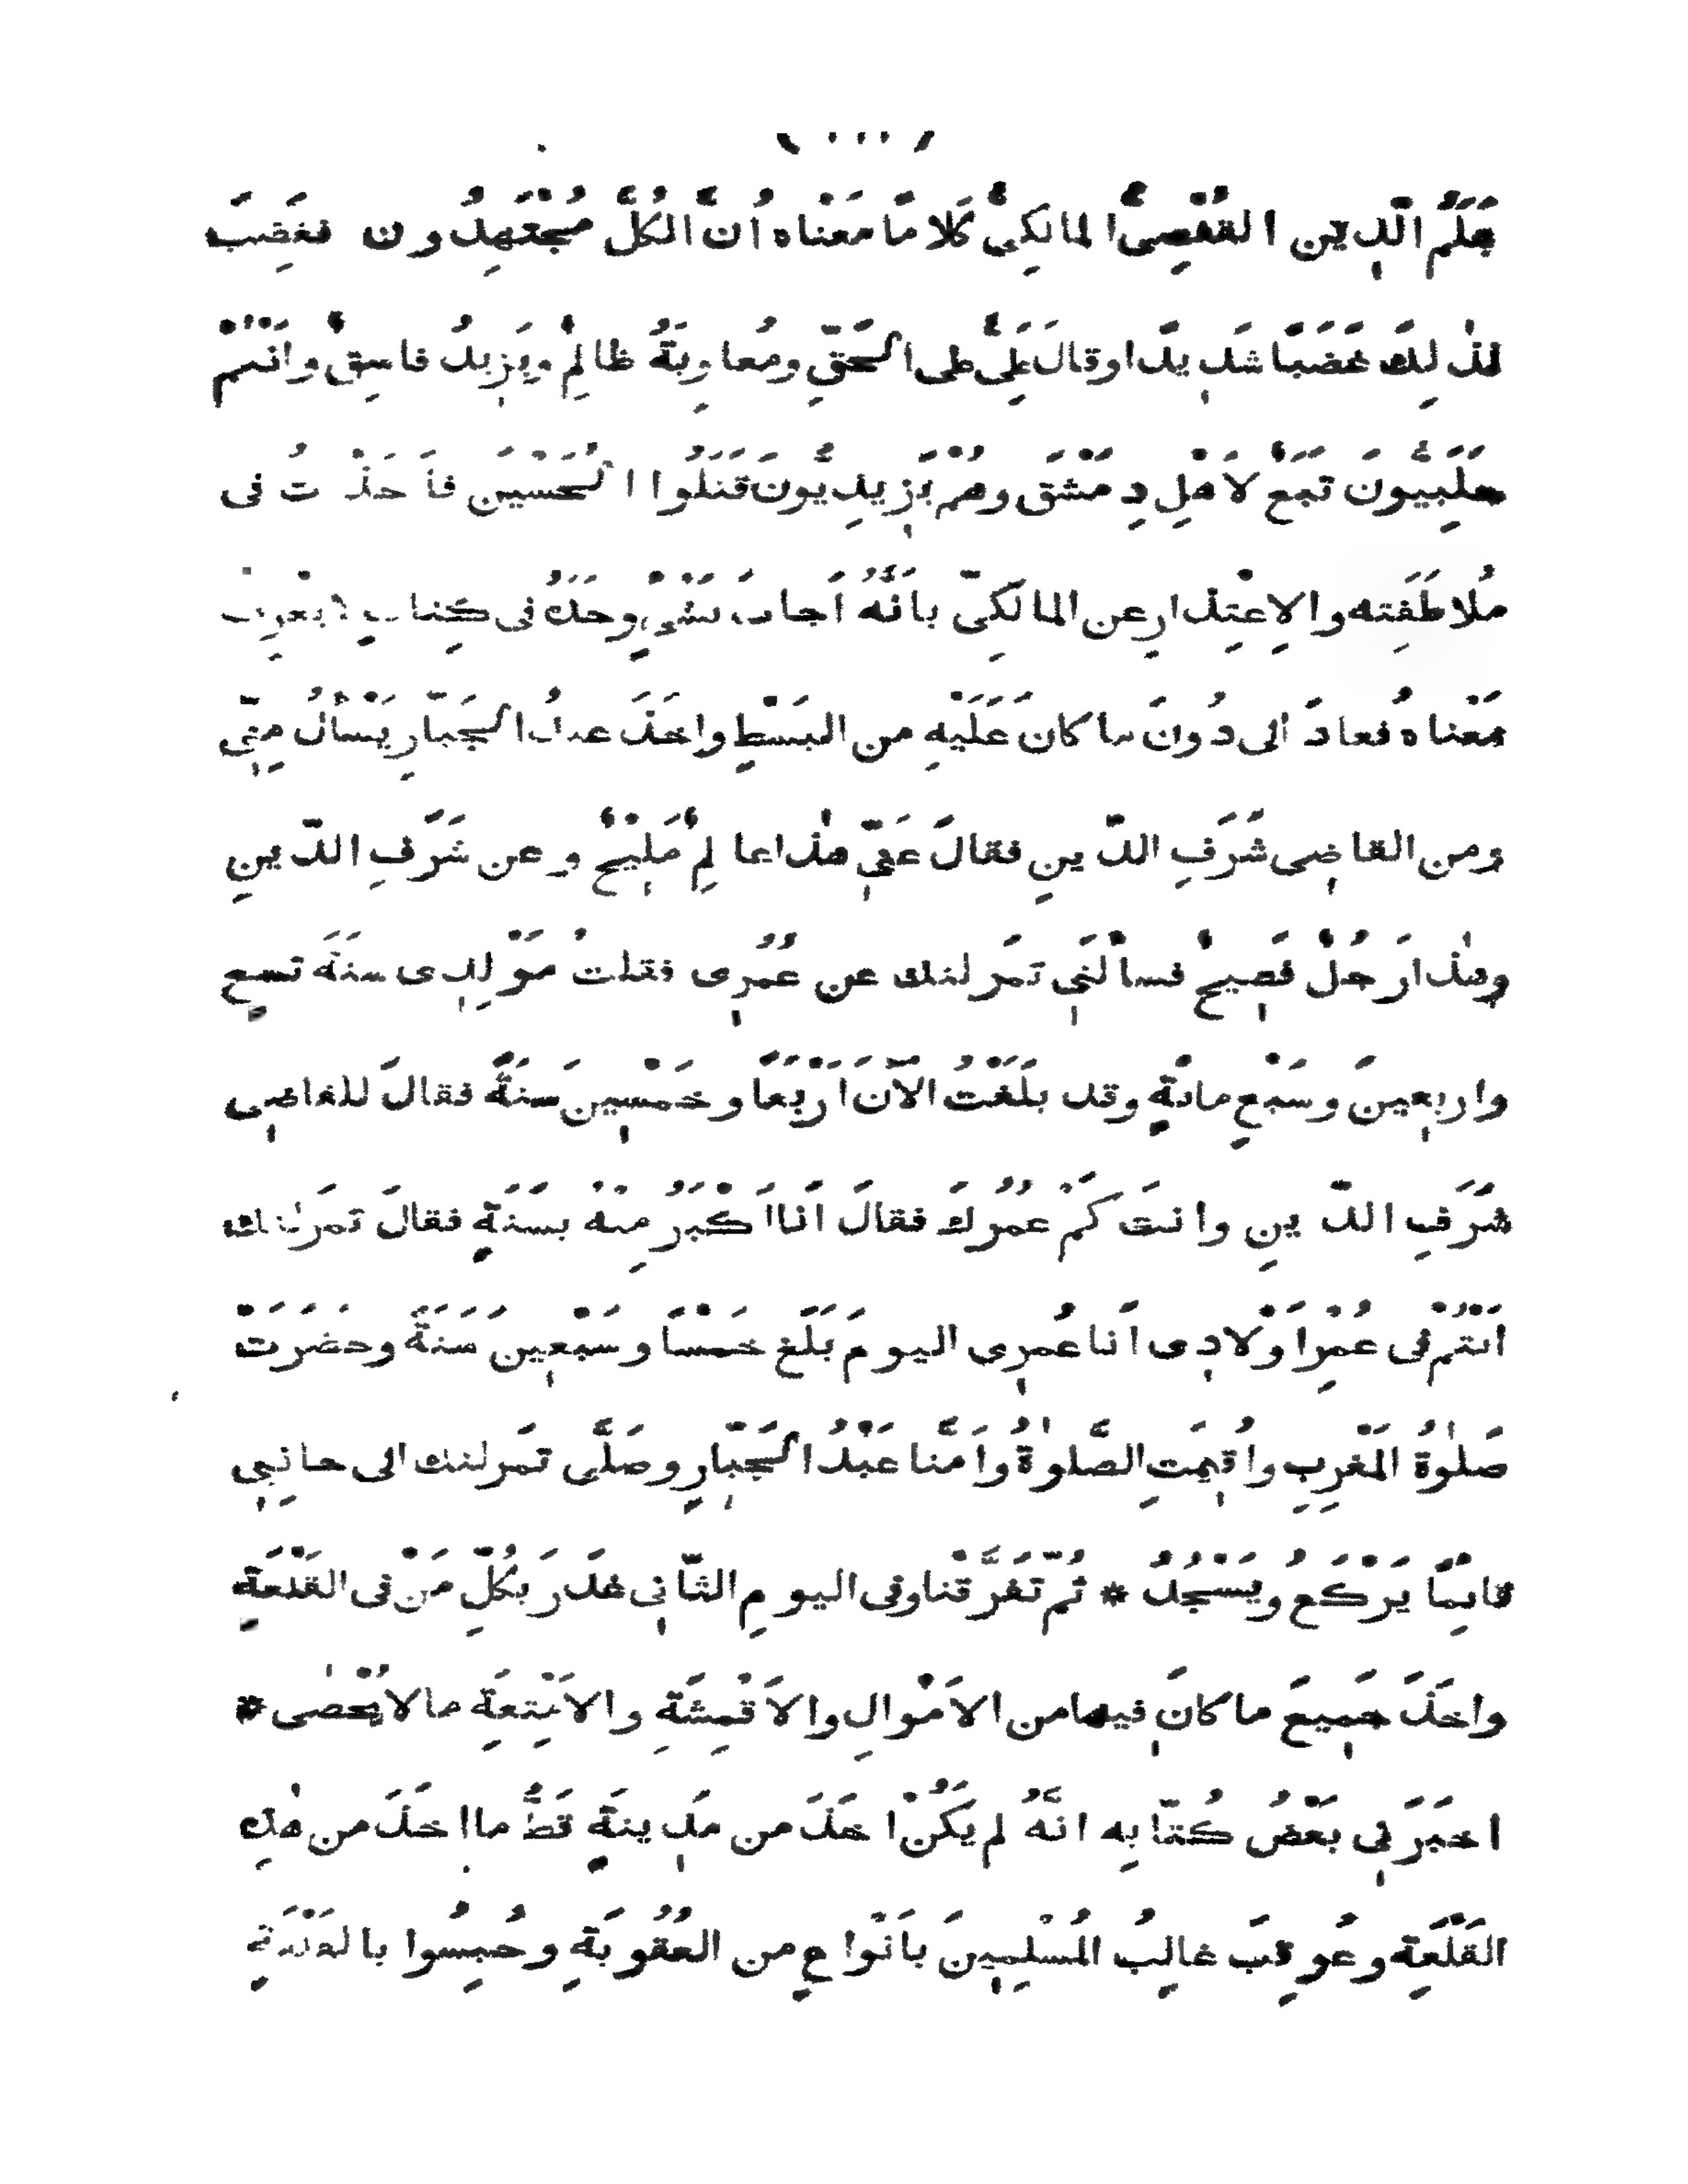 عَلَمُ الدِّين القَفْصِىُّ المالِكِىُّ كَلامًا مَعْناه اُنَّ الكُلَّ مُجْتَهِدُون فغَضِبَ
لذٰلِكَ غَضَبًا شَدِيدًا وقالَ عَلِىٌّ على الحَقِّ ومُعاوِيَةُ ظالِمٌ ويَزِيدُ فاسِقٌ وانْتُمْ
حَلَبِيُّونَ تَبَعٌ لاَهْلِ دِمَشْقَ وهُمْ يَزِيدِيُّونَ قَتَلُوا الحُسَيْنَ فاَخَذْتُ فى
مُلاطَفَتِه والاِعْتِذارِ عن المالِكِىّ بأنَّهُ اَجابَ بشَىْءٍ وجَدَهُ فى كِتابٍ لا يعْرِفُ
مَعْناهُ فعادَ الى دُونَ ما كان عَلَيْهِ من البَسْطِ واخَذَ عبدُ الجَبّارِ يَسْأَلُ مِنّى
ومن القاضِى شَرَفِ الدّينِ فقالَ عَنِّى هٰذا عالِمٌ مَلِيْحٌ وعن شَرَفِ الدّينِ
وهٰذا رَجُلٌ فَصِيحٌ فسأَلَنِى تَمَرلنك عن عُمُرِى فقلتُ مَوْلِدِى سنَةَ تسعٍ
واربعِينَ وسَبْعِ مائةٍ وقد بلَغْتُ الآنَ اَرْبَعًا وخَمْسِينَ سنَةً فقالَ للقاضِى
شَرَفِ الدّينِ وانتَ كَمْ عمُرُكَ فقالَ اَنا اَكْبَرُ مِنْهُ بسَنَةٍ فقالَ تمَرلنك
اَنْتُمْ فى عُمْرِ اَوْلادِى اَنا عُمرِى اليومَ بَلَغَ خَمْسًا وسَبْعِينَ سَنَةً وحَضَرَتْ
صَلٰوةُ المَغْرِبِ واُقِيمَتِ الصَّلٰوةُ واَمَّنا عَبْدُ الجَبّارِ وصَلَّى تمَرلنك الى جانِبِى
قائِمًا يَرْكَعُ ويَسْجُدُ * ثُمّ تَفَرَّقْنا وفى اليومِ الثّانِى غَدَرَ بكُلِّ مَنْ فى القَلْعَةِ
واخَذَ جَمِيعَ ما كانَ فيها من الاَمْوالِ والاَقْمِشَةِ والاَمْتِعَةِ ما لا يُحْصٰى *
اخبَرَنِى بَعْضُ كُتّابِه انَّهُ لم يَكُنْ اخَذَ من مَدِينةٍ قَطُّ ما اخَذَ من هٰذِه
القَلْعَةِ وعُوقِبَ غالِبُ المُسْلِمِينَ بأَنْواعٍ من العُقُوبَةِ وحُبِسُوا بالقَلْعَةِ